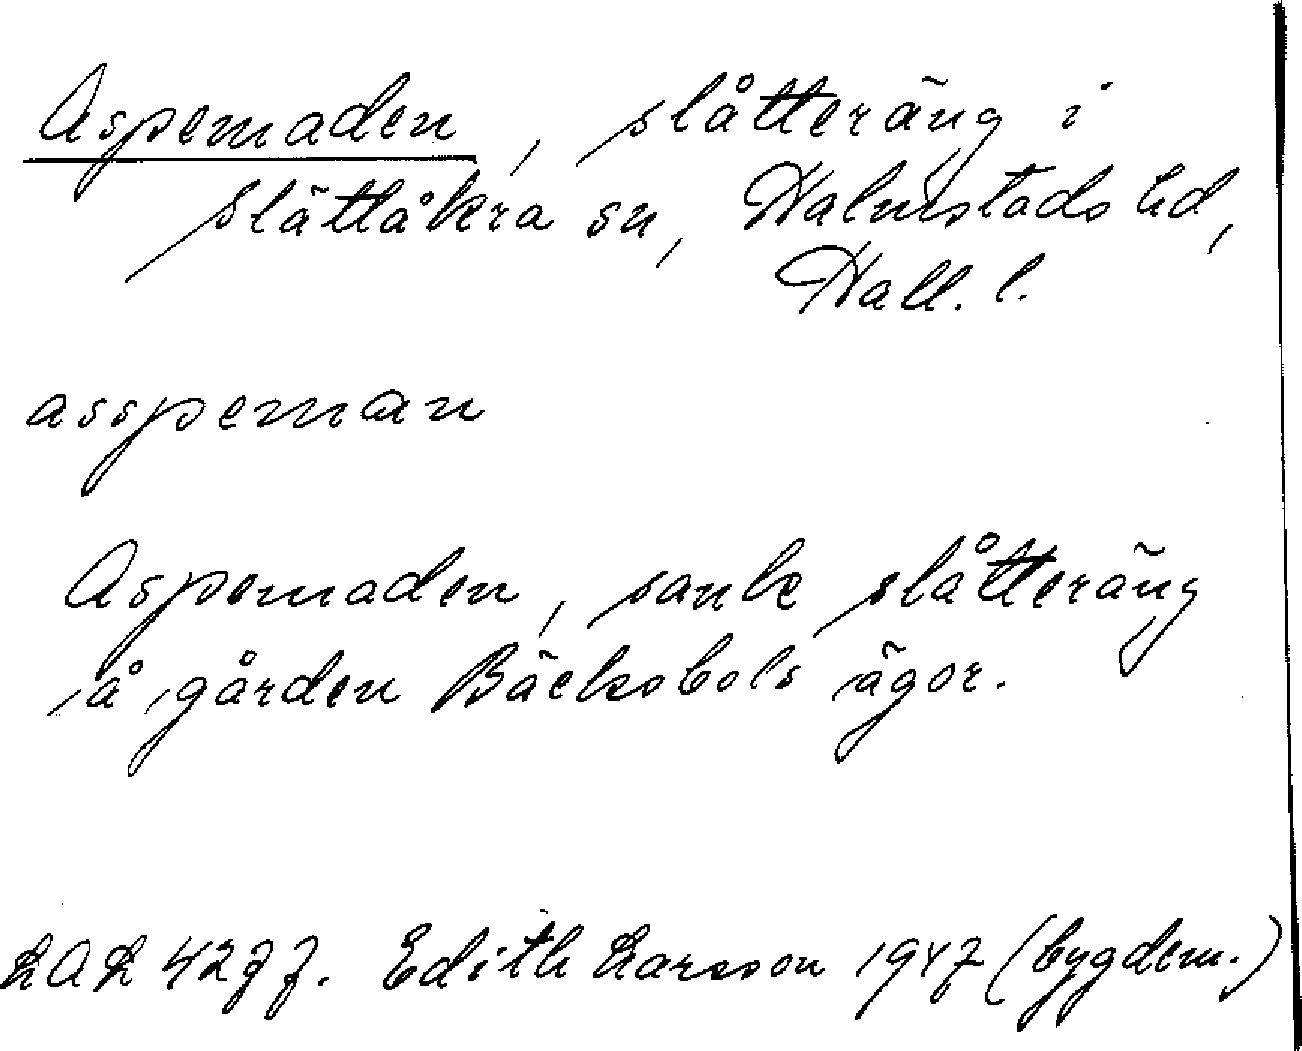 Aspemaden, slåtteräng i
Slättåkra sn, Halmstads hd,
Hall. l.
asspeman
Aspemaden, sank slåtteräng
å gården Bäcksbols ägor.
LAL 4277. Edith Larsson 1947 (bygdem.)